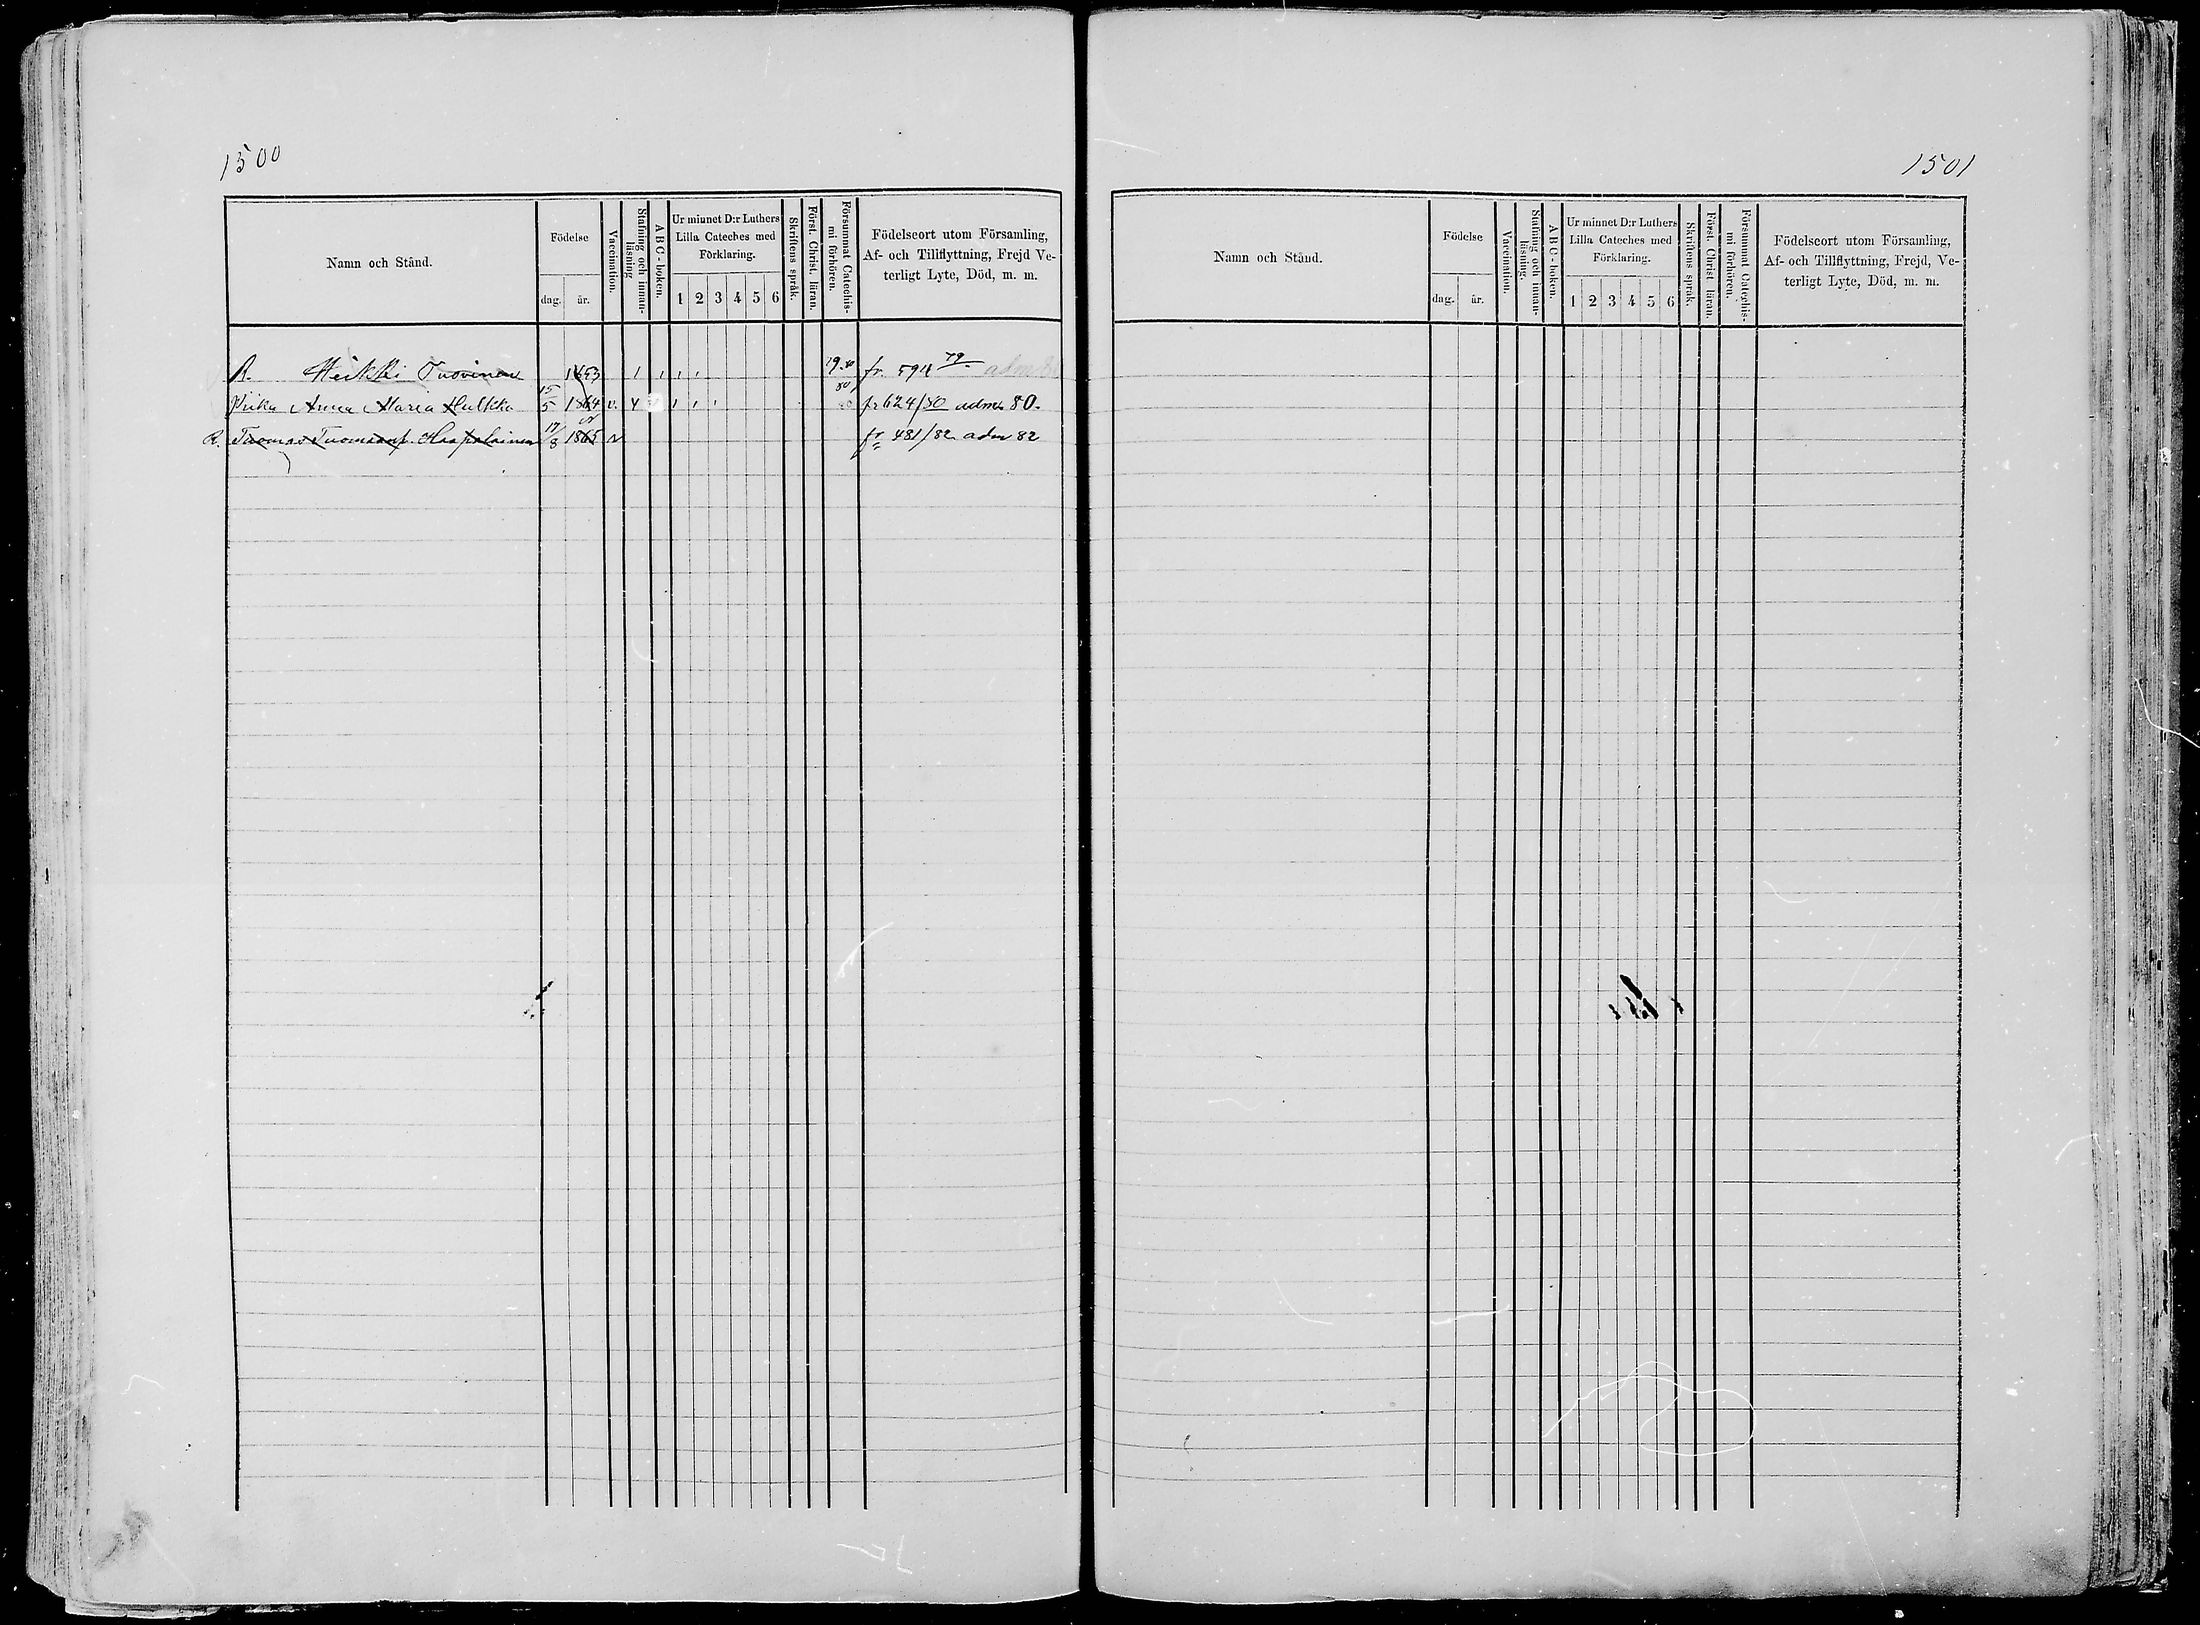 1500
Namn och Stånd.
Födelse
dag.
år.
Vaccination.
Stafning och innan-
läsning
ABC-boken.
Ur minnet D:r Luthers
Lilla Cateches med
Förklaring.
1 2 3 4 5 6
Skriftens språk.
Först. Christ. läran.
Försummat Catechis-
mi förhören.
Födelseort utom Församling,
Af- och Tillflyttning, Frejd Ve-
terligt Lyte, Död, m. m.
R. Heikki Tuovinen 1853 fr. 594 79 adm 80
Piika Anna Maria Hulkko 15/5 1864 v. fr 624/80 adm. 80.
R. Tuomas Tuomaanp. Haapalainen 17/8 1865 v fr 481/82 adm 82
1501
Namn och Stånd.
Födelse
dag.
år.
Vaccination.
Stafning och innan-
läsning.
ABC-boken.
Ur minnet D:r Luthers
Lilla Cateches med
Förklaring.
1 2 3 4 5 6
Skriftens språk.
Först. Christ läran.
Försummat Catechis-
mi förhören.
Födelseort utom Församling,
Af- och Tillflyttning, Frejd, Ve-
terligt Lyte, Död, m. m.